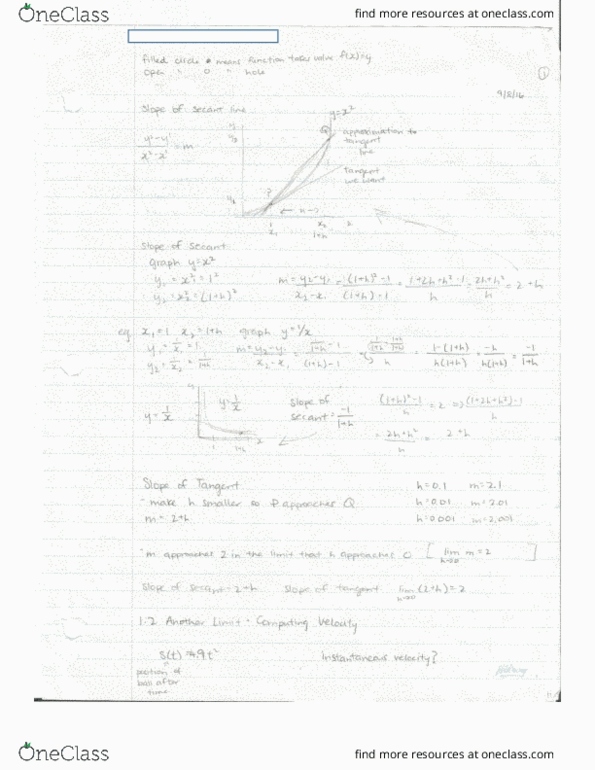 OneClass
find more resources at oneclass.com
filled circle • means function takes value f(x)=y
open " O " hole
1
9/8/16
slope of secant line
y=x²
Q
approximation to tangent line
y²-y¹ / x²-x¹ = m
Tangent we want
P
x₁ x₂
1 1+h 2
slope of secant
graph y=x²
y₁ = x₁² = 1²
y₂ = x₂² = (1+h)²
m = y₂-y₁ / x₂-x₁ = (1+h)²-1 / (1+h)-1 = 1+2h+h²-1 / h = 2h+h² / h = 2+h
eg. x₁=1 x₂=1+h graph y=1/x
y₁ = 1/x₁ = 1
y₂ = 1/x₂ = 1/1+h
m = y₂-y₁ / x₂-x₁ = 1/1+h - 1 / (1+h)-1
= 1-(1+h) / h(1+h) = -h / h(1+h) = -1 / 1+h
y=1/x
y=1/x
slope of secant = -1 / 1+h
(1+h)²-1 / h
(1+2h+h²)-1 / h
= 2h+h² / h = 2+h
Slope of Tangent
- make h smaller so P approaches Q
m = 2+h
h=0.1 m=2.1
h=0.01 m=2.01
h=0.001 m=2.001
- m approaches 2 in the limit that h approaches 0 [ lim h→0 m = 2 ]
slope of secant = 2+h slope of tangent lim h→0 (2+h) = 2
1.2 Another Limit - Computing Velocity
s(t) = 4.9t²
Instantaneous velocity?
position of ball after time
OneClass
find more resources at oneclass.com